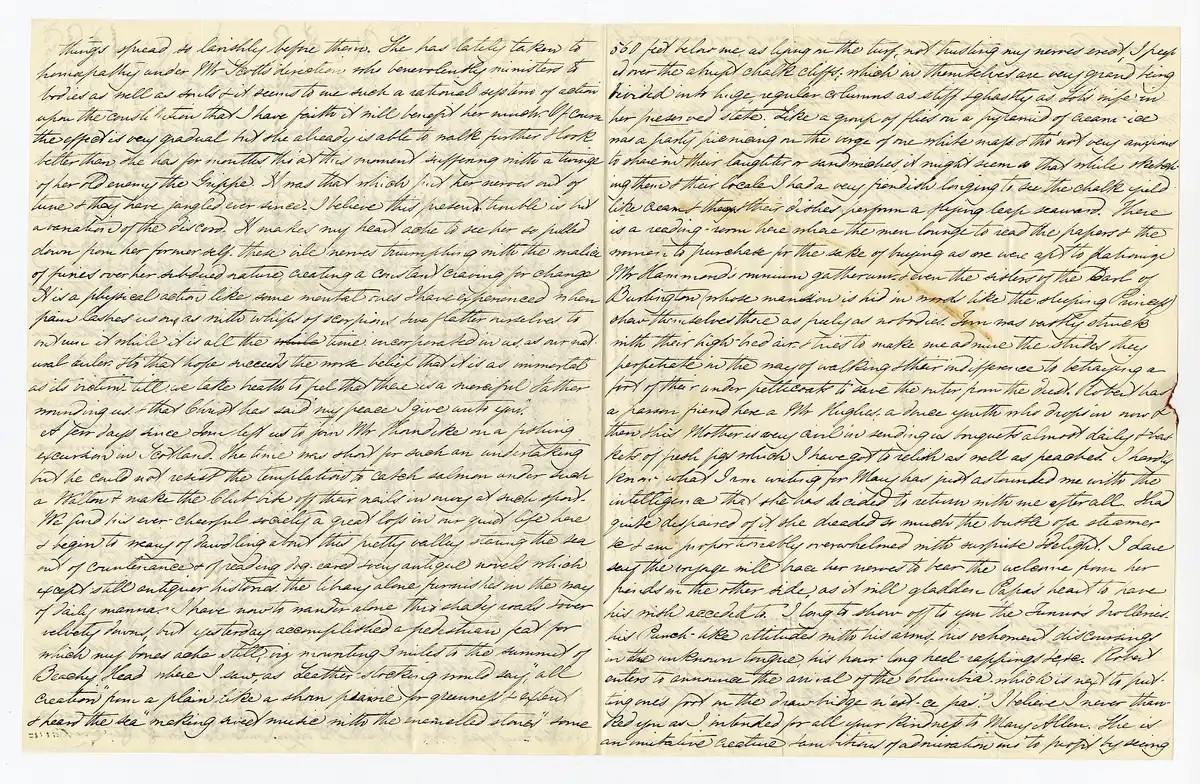 things spread so lavishly before them. She has lately taken to
homeopathy under Mr Scott's direction who benevolently ministers to
bodies as well as souls & it seems to me such a rational system of action
upon the constitution that I have faith it will benefit her much. Of course
the effect is very gradual but she already is able to walk further & look
better than she has for months tho' at this moment suffering with a twinge
of her old enemy the Grippe. It was that which put her nerves out of
tune & they have jangled ever since. I believe this present trouble is but
a variation of the discord. It makes my head ache to see her so pulled
down from her former self, these vile nerves triumphing with the malice
of furies over her subdued nature, creating a constant craving for change
It is a physical action like some mental ones I have experienced when
pain lashes us on as with whips of scorpions & we flatter ourselves to
out run it while it is all the while time incorporated in us as our nat
ural ruler. & to that hope succeeds the worse belief that it is as immortal
as its victim till we take breath to feel that there is a merciful Father
rounding us & that Christ has said "my peace I give unto you".
A few days since Tom left us to join Mr Thorndike in a fishing
excursion in Scotland. The time was short for such an undertaking
but he could not resist the temptation to catch salmon under such
a Walton & make the Club bite off their nails in envy at such sport.
We find his ever cheerful society a great loss in our quiet life here
& begin to weary of dawdling about this pretty valley, staring the sea
out of countenance & of reading dog-eared & very antique novels which
except still antiquer histories the library alone furnishes in the way
of daily manna. I have now to wander alone thro' shady roads & over
velvety downs, but yesterday accomplished a pedestrian feat for
which my bones ache still, viz mounting 3 miles to the summit of
Beachy Head where I saw as Leather-stocking would say, "all
creation" from a plain like a shorn prairie for greenness & extent
& heard the sea making sweet music with the enamelled stones" some
560 feet below me as lying on the turf, not trusting my nerves erect, I peep
d over the abrupt chalk cliffs, which in themselves are very grand being
divided into huge, regular columns as stiff & ghastly as Lot's wife in
her preserved state. Like a group of flies on a pyramid of cream-ice
was a party picnicing on the verge of one white mass & tho' not very anxious
to share in their laughter or sandwiches it might seem so that while sketch-
ing them & their locale I had a very fiendish longing to see the chalk yield
like cream & their dishes perform a flying leap seaward. There
is a reading-room here where the men lounge to read the papers & the
women to purchase for the sake of buying as we were apt to patronize
Mr Hammond's omnium gatherum & even the sisters of the Earl of
Burlington, whose mansion is hid in woods like the sleeping Princess'
show themselves there as freely as nobodies. Tom was vastly struck
with their high-bred air & tries to make me admire the strides they
perpetrate in the way of walking & their indifference to betraying a
foot of their under petticoats to save the outer from the dust. Robert has
a parson friend here a Mr Hughes, a douce youth who drops in now &
then & his Mother is very civil in sending us bouquets almost daily & bas
kets of fresh figs which I have got to relish as well as peaches. I hardly
know what I am writing for Mary has just astounded me with the
intelligence that she has decided to return with me after all. I had
quite despaired of it, she dreaded so much the bustle of a steamer
&c & am proportionably overwhelmed with surprise & delight. I dare
say the voyage will brace her nerves to bear the welcome from her
friends on the other side, as it will gladden Papa's heart to have
his wish acceded to. I long to show off to you the Junior's drolleries
his Punch-like attitudes with his arms, his vehement discoursings
in the unknown tongue his raw-long heel-rappings &c &c. Robert
enters to announce the arrival of the Columbia which is next to put
ting one's foot on the drawbridge n'est-ce pas? I believe I never than-
ked you as I intended for all your kindness to Mary Allen. She is
an imitative creature & ambitious of admiration ons to profit by seeing